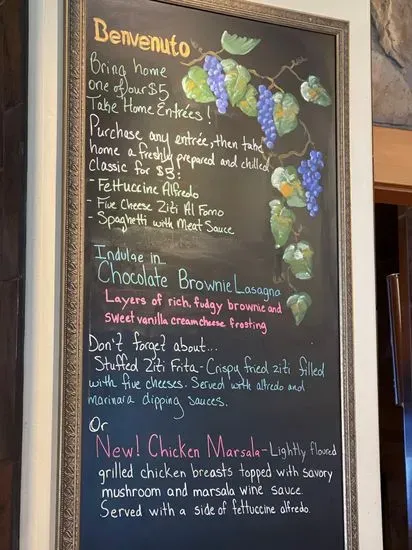 Benvenuto
Bring home
one of our $5
Take Home Entrées!
Purchase any entrée, then take
home a freshly prepared and chilled
classic for $5:
- Fettuccine Alfredo
- Five Cheese Ziti Al Forno
- Spaghetti with Meat Sauce
Indulge in...
Chocolate Brownie Lasagna
Layers of rich, fudgy brownie and
sweet vanilla cream cheese frosting
Don't forget about...
Stuffed Ziti Frita - Crispy fried ziti filled
with five cheeses. Served with alfredo and
marinara dipping sauces.
Or
New! Chicken Marsala - Lightly floured
grilled chicken breasts topped with savory
mushroom and marsala wine sauce.
Served with a side of fettuccine alfredo.